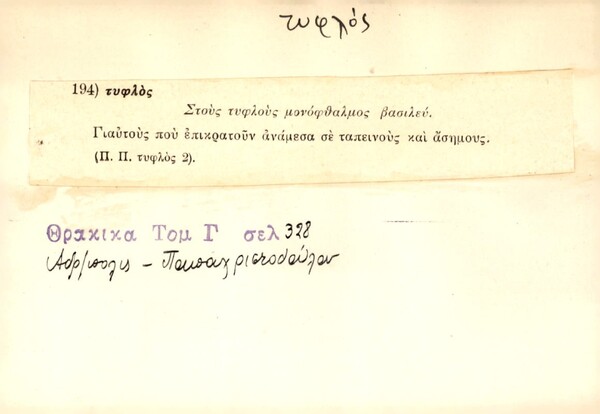 τυφλός
194) τυφλὸς
Στοὺς τυφλοὺς μονόφθαλμος βασιλεύ.
Γιαὐτοὺς ποὺ ἐπικρατοῦν ἀνάμεσα σὲ ταπεινοὺς καὶ ἄσημους.
(Π. Π. τυφλὸς 2).
Θρακικα Τομ Γ σελ 328
Αδρ/πολις – Παπαχριστοδούλου